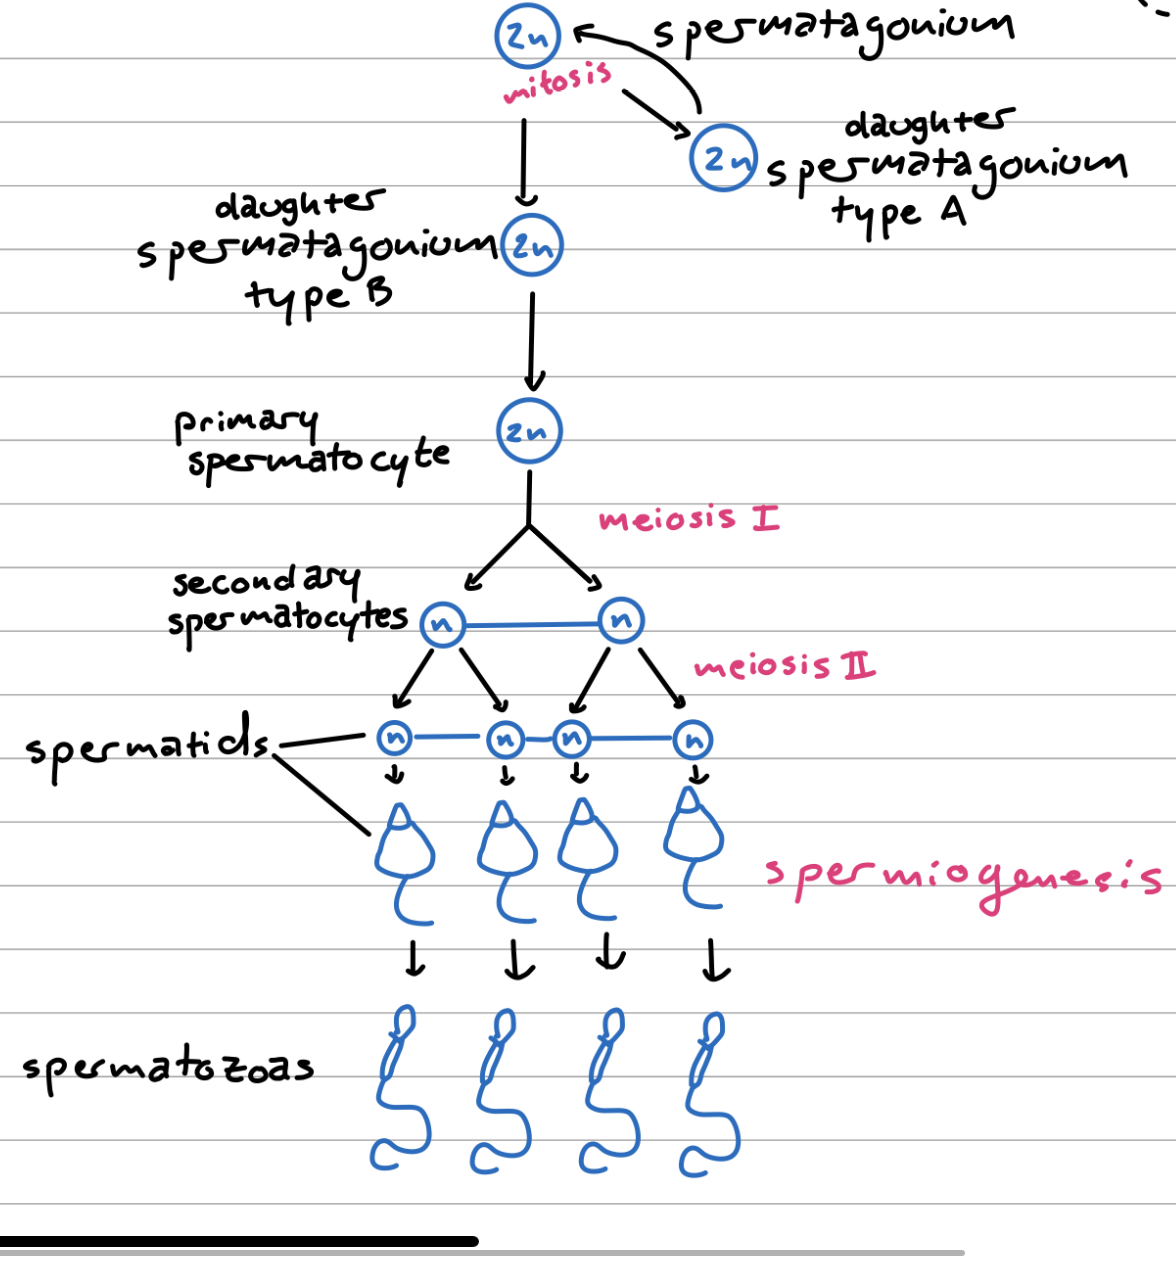 2n
spermatagonium
mitosis
2n
daughter
spermatagonium
type A
daughter
spermatagonium
type B
2n
2n
primary
spermatocyte
meiosis I
secondary
spermatocytes
n
n
meiosis II
spermatids
n
n
n
n
spermiogenesis
spermatozoas